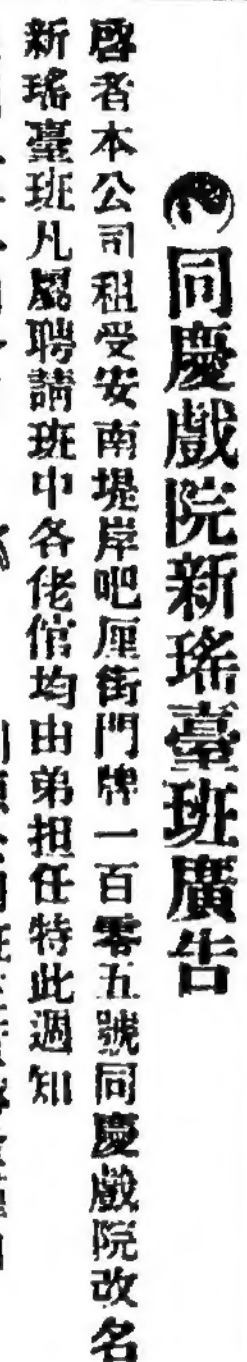 同慶戲院新瑤臺班廣告
啓者本公司租受安南堤岸吧厘街門牌一百零五號同慶戲院改名
新瑤臺班凡屬聘請班中各佬倌均由弟担任特此週知